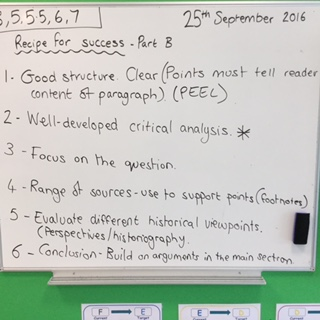 5,5.5.5,6,7
25th September 2016
Recipe for success - Part B
1- Good structure. Clear (Points must tell reader
content of paragraph) (PEEL)
2 - Well-developed critical analysis. *
3 - Focus on the question.
4 - Range of sources - use to support points (footnotes)
5 - Evaluate different historical viewpoints.
(Perspectives/historiography.
6 - Conclusion - Build on arguments in the main section.
F E
Current Target
E